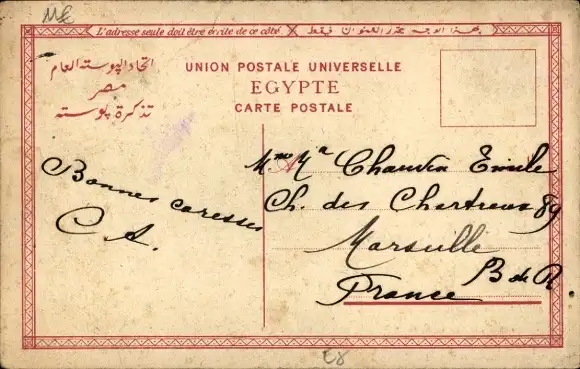 L'adresse seule doit être écrite de ce côté.
بهذا الوجه يحرر العنوان فقط
اتحاد البوسته العام
مصر
تذكرة بوسته
UNION POSTALE UNIVERSELLE
EGYPTE
CARTE POSTALE
Bonnes caresses
C A.
Mme Chauvin Emile
Ch. des Chartreux 89
Marseille
B d R
France